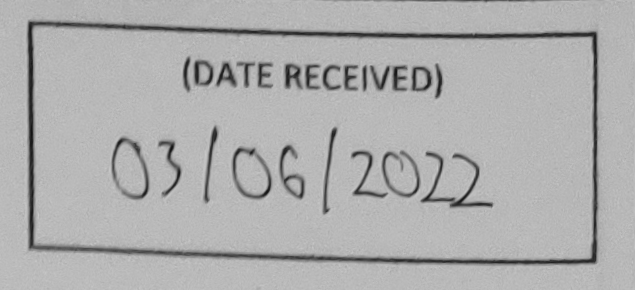 (DATE RECEIVED)
03/06/2022